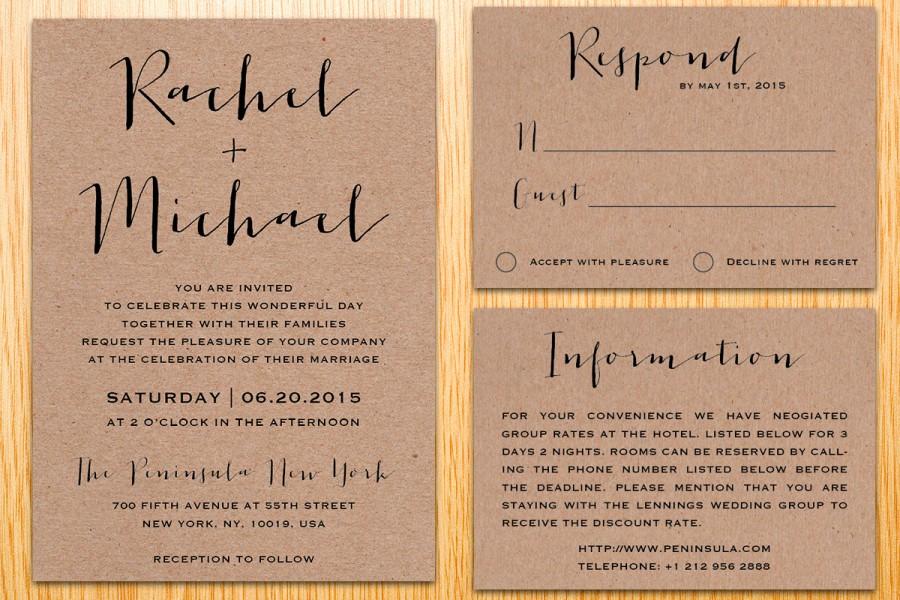 Rachel
+
Michael
YOU ARE INVITED
TO CELEBRATE THIS WONDERFUL DAY
TOGETHER WITH THEIR FAMILIES
REQUEST THE PLEASURE OF YOUR COMPANY
AT THE CELEBRATION OF THEIR MARRIAGE
SATURDAY | 06.20.2015
AT 2 O'CLOCK IN THE AFTERNOON
The Peninsula New York
700 FIFTH AVENUE AT 55TH STREET
NEW YORK, NY, 10019, USA
RECEPTION TO FOLLOW
Respond
BY MAY 1ST, 2015
N
Guest
ACCEPT WITH PLEASURE DECLINE WITH REGRET
Information
FOR YOUR CONVENIENCE WE HAVE NEOGIATED
GROUP RATES AT THE HOTEL. LISTED BELOW FOR 3
DAYS 2 NIGHTS. ROOMS CAN BE RESERVED BY CALL-
ING THE PHONE NUMBER LISTED BELOW BEFORE
THE DEADLINE. PLEASE MENTION THAT YOU ARE
STAYING WITH THE LENNINGS WEDDING GROUP TO
RECEIVE THE DISCOUNT RATE.
HTTP://WWW.PENINSULA.COM
TELEPHONE: +1 212 956 2888